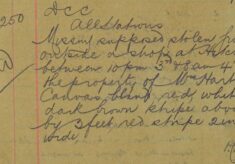 250
A.C.C
All Stations
Missing supposed stolen fr
outside a shop at
between 10 pm 3rd & 9 am 4
the property of Mrs Hart
Canvas blind, red, whit
dark brown stripe abou
by 3 feet, red stripe 2 in
wide.